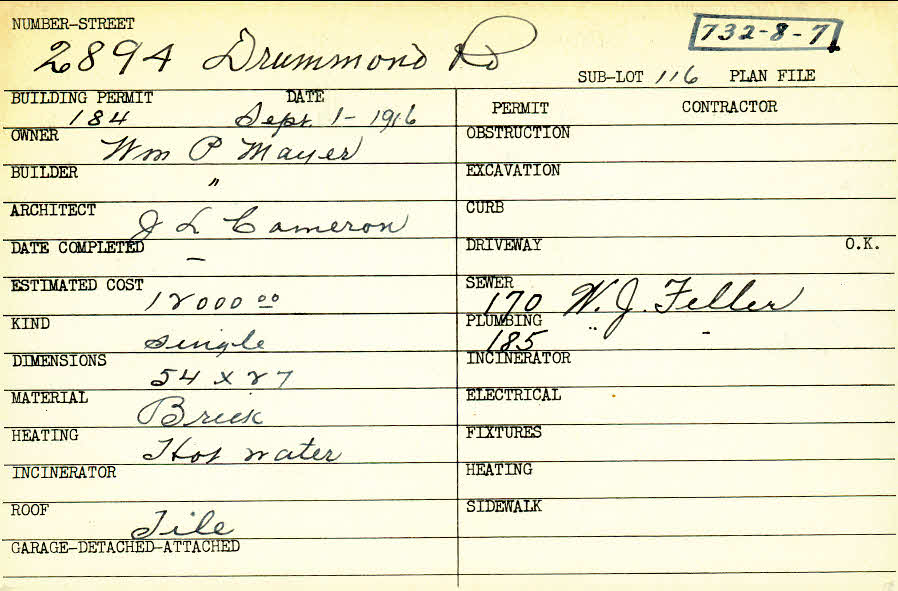 NUMBER-STREET
2894 Drummond Rd
732-8-7
SUB-LOT 116 PLAN FILE
BUILDING PERMIT DATE
184 Sept. 1-1916
OWNER Wm P Mayer
BUILDER "
ARCHITECT J L Cameron
DATE COMPLETED -
ESTIMATED COST 12000 00
KIND Single
DIMENSIONS 54 x 27
MATERIAL Brick
HEATING Hot water
INCINERATOR
ROOF Tile
GARAGE-DETACHED-ATTACHED
PERMIT CONTRACTOR
OBSTRUCTION
EXCAVATION
CURB
DRIVEWAY O.K.
SEWER 170 W. J. Feller
PLUMBING 185 " -
INCINERATOR
ELECTRICAL
FIXTURES
HEATING
SIDEWALK